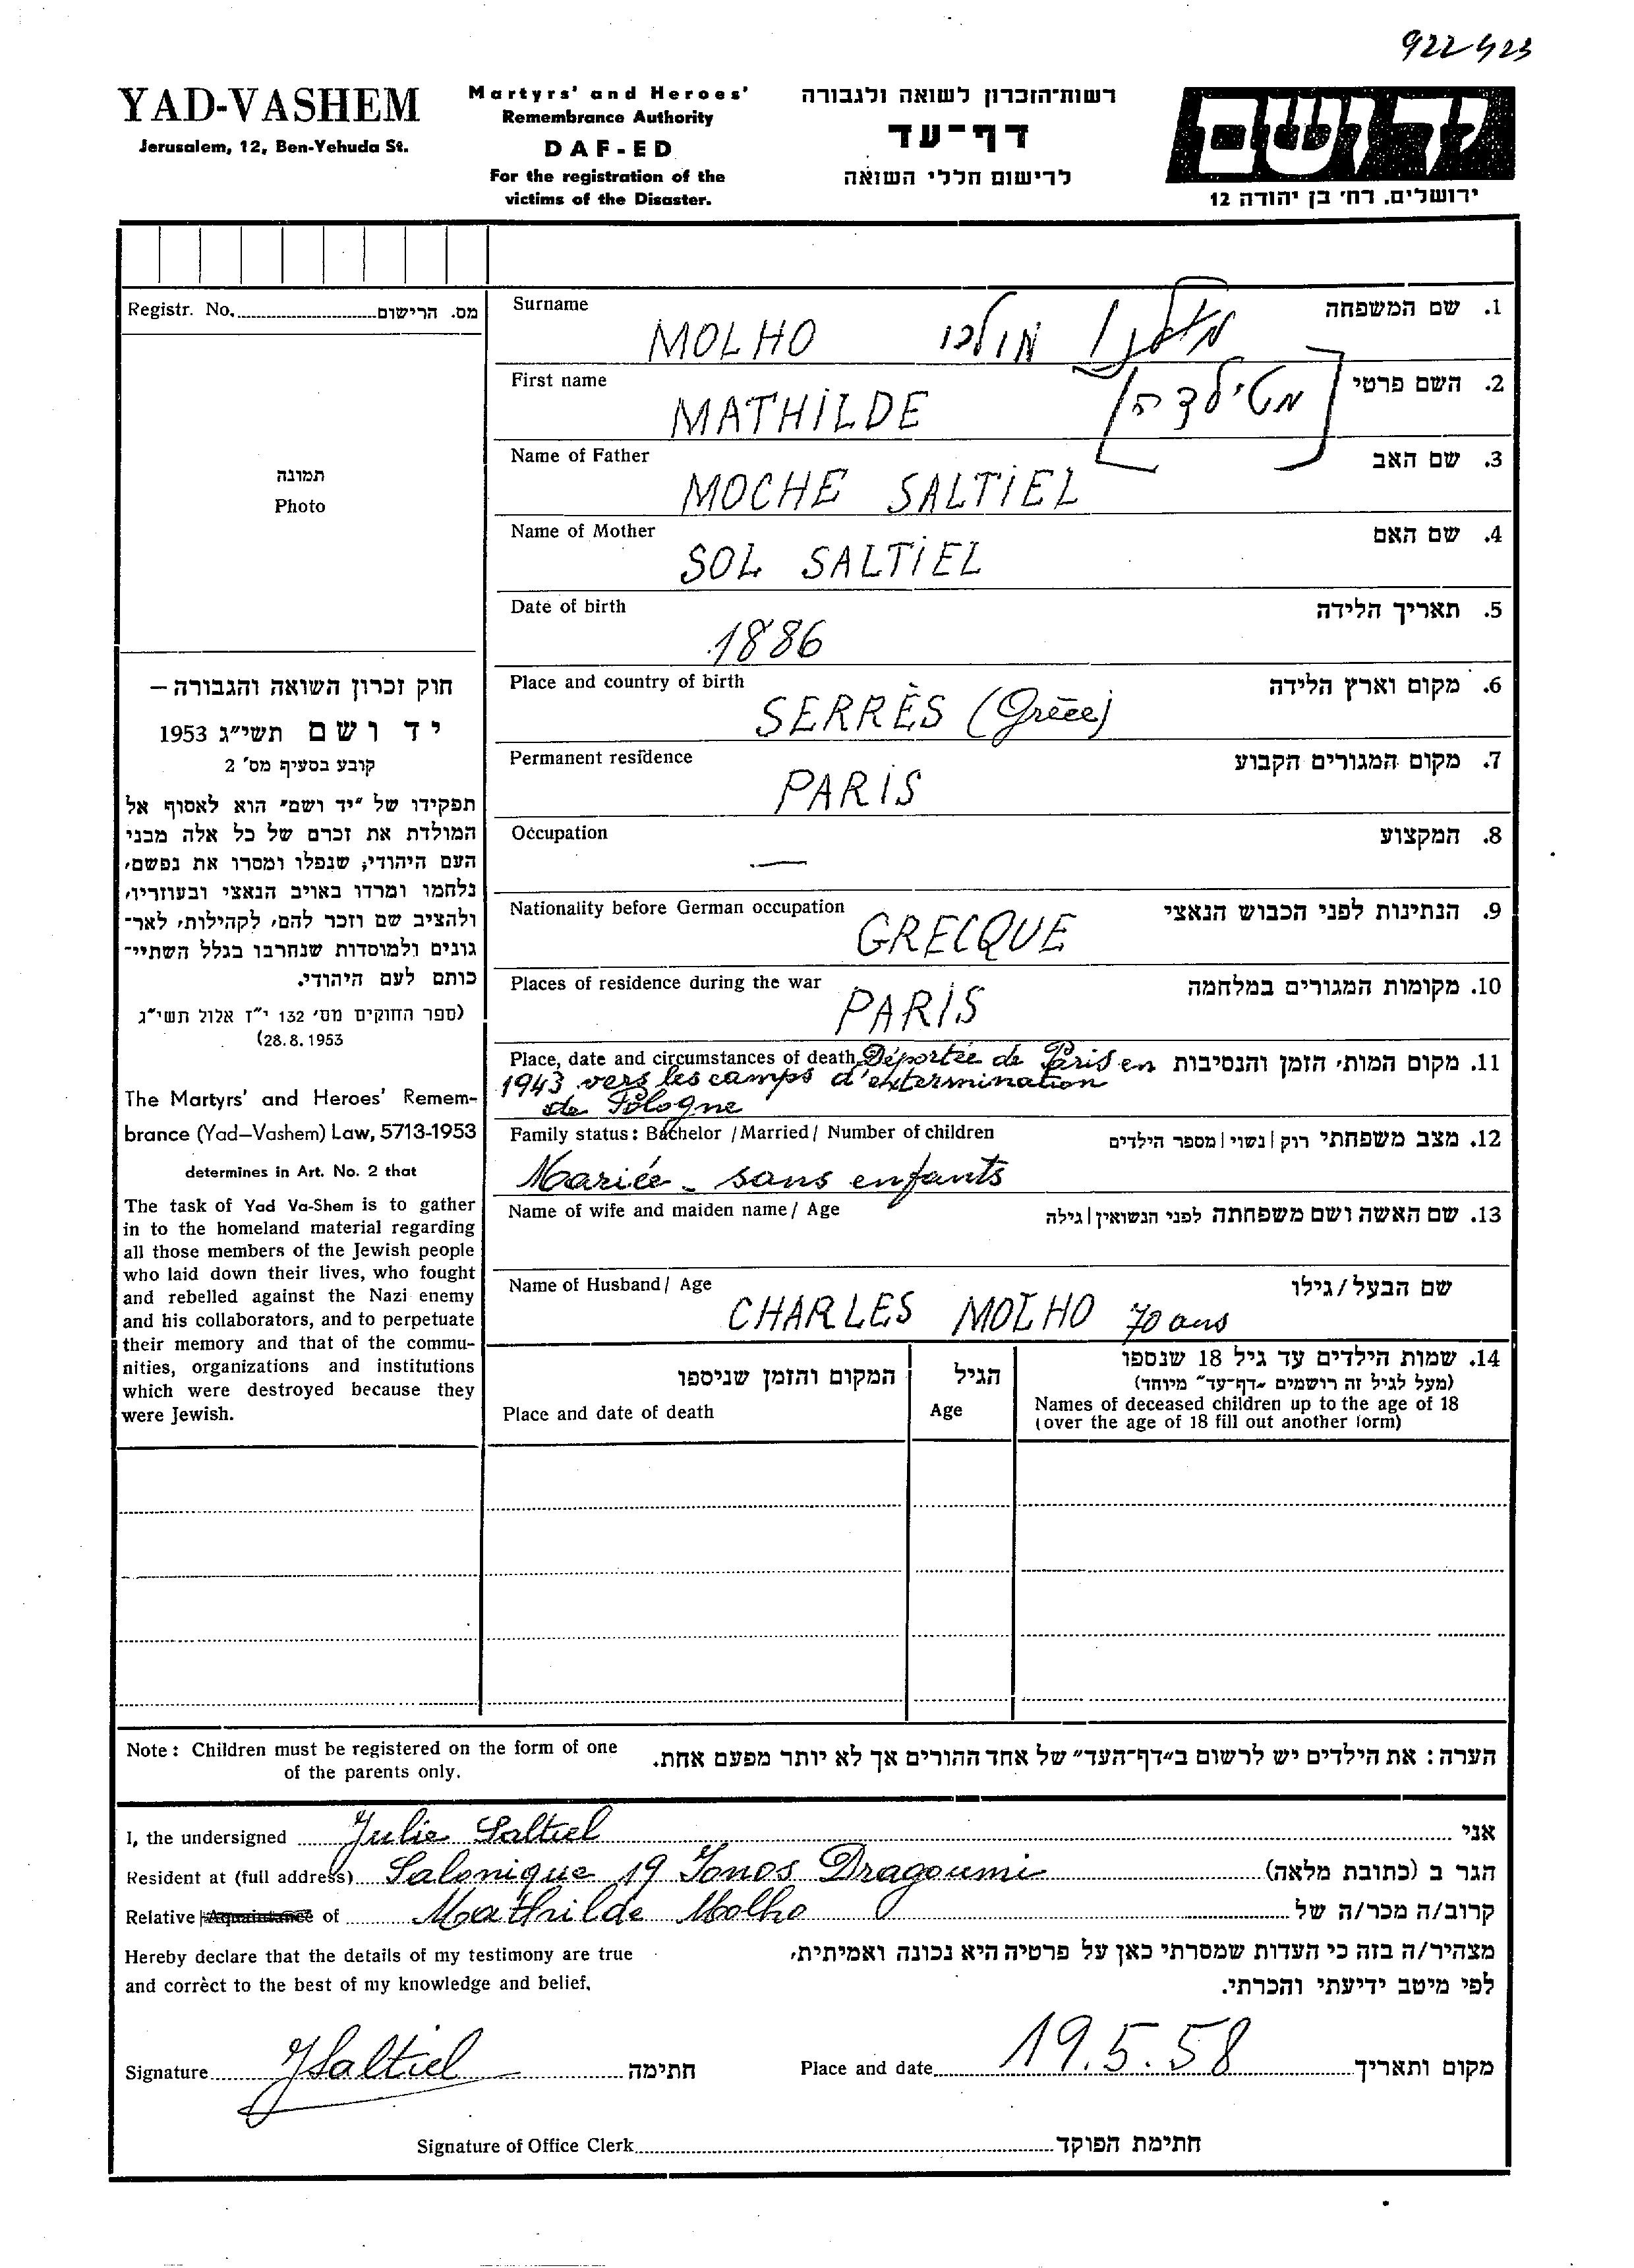 922423
YAD-VASHEM
Jerusalem, 12, Ben-Yehuda St.
Martyrs' and Heroes'
Remembrance Authority
DAF-ED
For the registration of the
victims of the Disaster.
רשות־הזכרון לשואה ולגבורה
דף־עד
לרישום חללי השואה
ידושם
ירושלים, רח' בן יהודה 12
Registr. No. מס. הרישום
תמונה
Photo
חוק זכרון השואה והגבורה –
יד ושם תשי״ג 1953
קובע בסעיף מס' 2
תפקידו של "יד ושם" הוא לאסוף אל
המולדת את זכרם של כל אלה מבני
העם היהודי, שנפלו ומסרו את נפשם,
נלחמו ומרדו באויב הנאצי ובעוזריו,
ולהציב שם וזכר להם, לקהילות, לאר־
גונים ולמוסדות שנחרבו בגלל השתיי־
כותם לעם היהודי.
(ספר החוקים מס' 132 י״ז אלול תשי״ג
28.8.1953)
The Martyrs' and Heroes' Remem-
brance (Yad–Vashem) Law, 5713-1953
determines in Art. No. 2 that
The task of Yad Va-Shem is to gather
in to the homeland material regarding
all those members of the Jewish people
who laid down their lives, who fought
and rebelled against the Nazi enemy
and his collaborators, and to perpetuate
their memory and that of the commu-
nities, organizations and institutions
which were destroyed because they
were Jewish.
Surname 1. שם המשפחה
MOLHO מולכו
First name 2. השם פרטי
MATHILDE מטילדה
Name of Father 3. שם האב
MOCHE SALTIEL
Name of Mother 4. שם האם
SOL SALTIEL
Date of birth 5. תאריך הלידה
1886
Place and country of birth 6. מקום וארץ הלידה
SERRÈS (Grèce)
Permanent residence 7. מקום המגורים הקבוע
PARIS
Occupation 8. המקצוע
—
Nationality before German occupation 9. הנתינות לפני הכבוש הנאצי
GRECQUE
Places of residence during the war 10. מקומות המגורים במלחמה
PARIS
Place, date and circumstances of death Déportée de Paris en 11. מקום המות, הזמן והנסיבות
1943 vers les camps d'extermination
de Pologne
Family status: Bachelor / Married / Number of children 12. מצב משפחתי רוק | נשוי | מספר הילדים
Mariée - sans enfants
Name of wife and maiden name / Age 13. שם האשה ושם משפחתה לפני הנשואין | גילה
Name of Husband / Age שם הבעל / גילו
CHARLES MOLHO 70 ans
המקום והזמן שניספו
Place and date of death
הגיל
Age
14. שמות הילדים עד גיל 18 שנספו
(מעל לגיל זה רושמים "דף־עד" מיוחד)
Names of deceased children up to the age of 18
(over the age of 18 fill out another form)
Note: Children must be registered on the form of one
of the parents only.
הערה: את הילדים יש לרשום ב"דף־העד" של אחד ההורים אך לא יותר מפעם אחת.
I, the undersigned Julie Saltiel אני
Resident at (full address) Salonique 19 Ionos Dragoumi הגר ב (כתובת מלאה)
Relative / Aquaintance of Mathilde Molho קרוב/ה מכר/ה של
Hereby declare that the details of my testimony are true
and corrèct to the best of my knowledge and belief.
מצהיר/ה בזה כי העדות שמסרתי כאן על פרטיה היא נכונה ואמיתית,
לפי מיטב ידיעתי והכרתי.
Signature JSaltiel חתימה
Place and date 19.5.58 מקום ותאריך
Signature of Office Clerk חתימת הפוקד